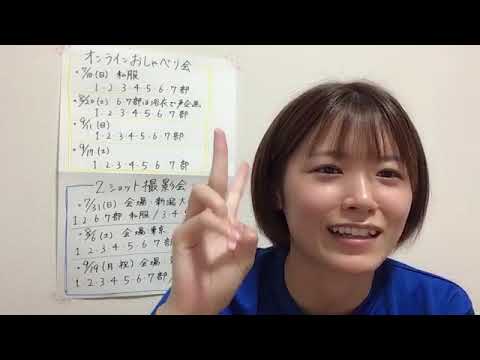 オンラインおしゃべり会
(日) 私服
1・2・3・4・5・6・7部
(土) 6・7部は浴衣で声企画
1・2・3・4・5・6・7部
・9/11(日)
1・2・3・4・5・6・7部
・9/17(土)
1 2・3・4・5 6 7部
2ショット撮影会
・7/31(日) 会場:新潟
1 2 6 7部 私服 / 3・4
(土) 会場:東京
1 2・3・4・5・6・7部
・9/19(月・祝) 会場
1 2・3・4・5・6・7部